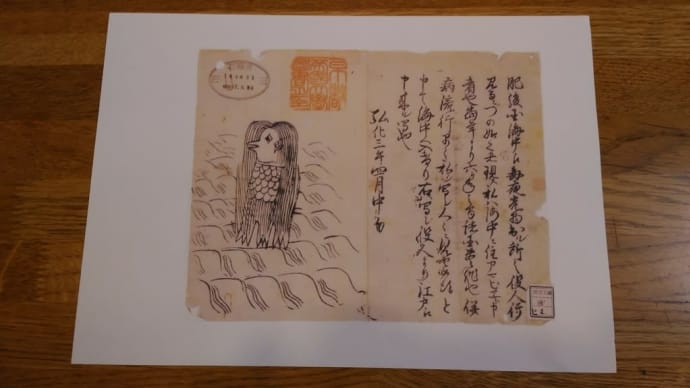 肥後国海中江毎夜光物出ル所之役人行
見るニづの如之者現ス私ハ海中ニ住アマビヱト申
者也当年より六ヶ年之間諸国豊作也併
病流行早々私ヲ写シ人々ニ見せ候得と
申て海中へ入けり右写シ役人より江戸江
申来ル写也
弘化三年四月中旬